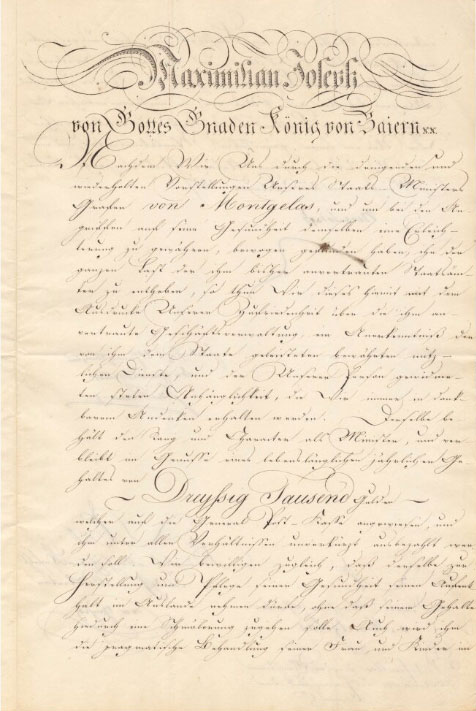 Maximilian Joseph
von Gottes Gnaden König von Baiern xx.
Nachdem Wir Uns durch die dringenden und
wiederholten Vorstellungen Unseres Staats-Ministers
Grafen von Montgelas, und um bei den An
auf seine Gesundheit demselben eine Erleich-
terung zu gewähren, bewogen gefunden haben, ihn der
ganzen Last der ihm bisher anvertrauten Staatsäm-
ter zu entheben, so thun Wir dieses hiemit mit dem
Ausdrucke Unserer Zufriedenheit über die ihm an-
vertraute Geschäftsverwaltung, in Anerkenntniß der
von ihm dem Staate geleisteten bewährten nütz-
lichen Dienste, und der Unserer Person gewidme-
ten steten Anhänglichkeit, die Wir immer in dank-
barem Andenken erhalten werden. Derselbe be-
hält den Rang und Charakter als Minister, und ver-
bleibt im Genusse eines lebenslänglichen jährlichen Ge-
haltes von
Dreyssig Tausend Gulden
welcher auf die General Post-Kasse angewiesen, und
ihm unter allen Verhältnissen unverkürzt ausbezahlt wer-
den soll. Wir bewilligen zugleich, daß derselbe zur
Herstellung und Pflege seiner Gesundheit seinen Aufent-
halt im Auslande nehmen dürfe, ohne daß seinem Gehalte
hiedurch eine Schmälerung zugehen solle. Auch wird ihm
die pragmatische Behandlung seiner Frau und Kinder im